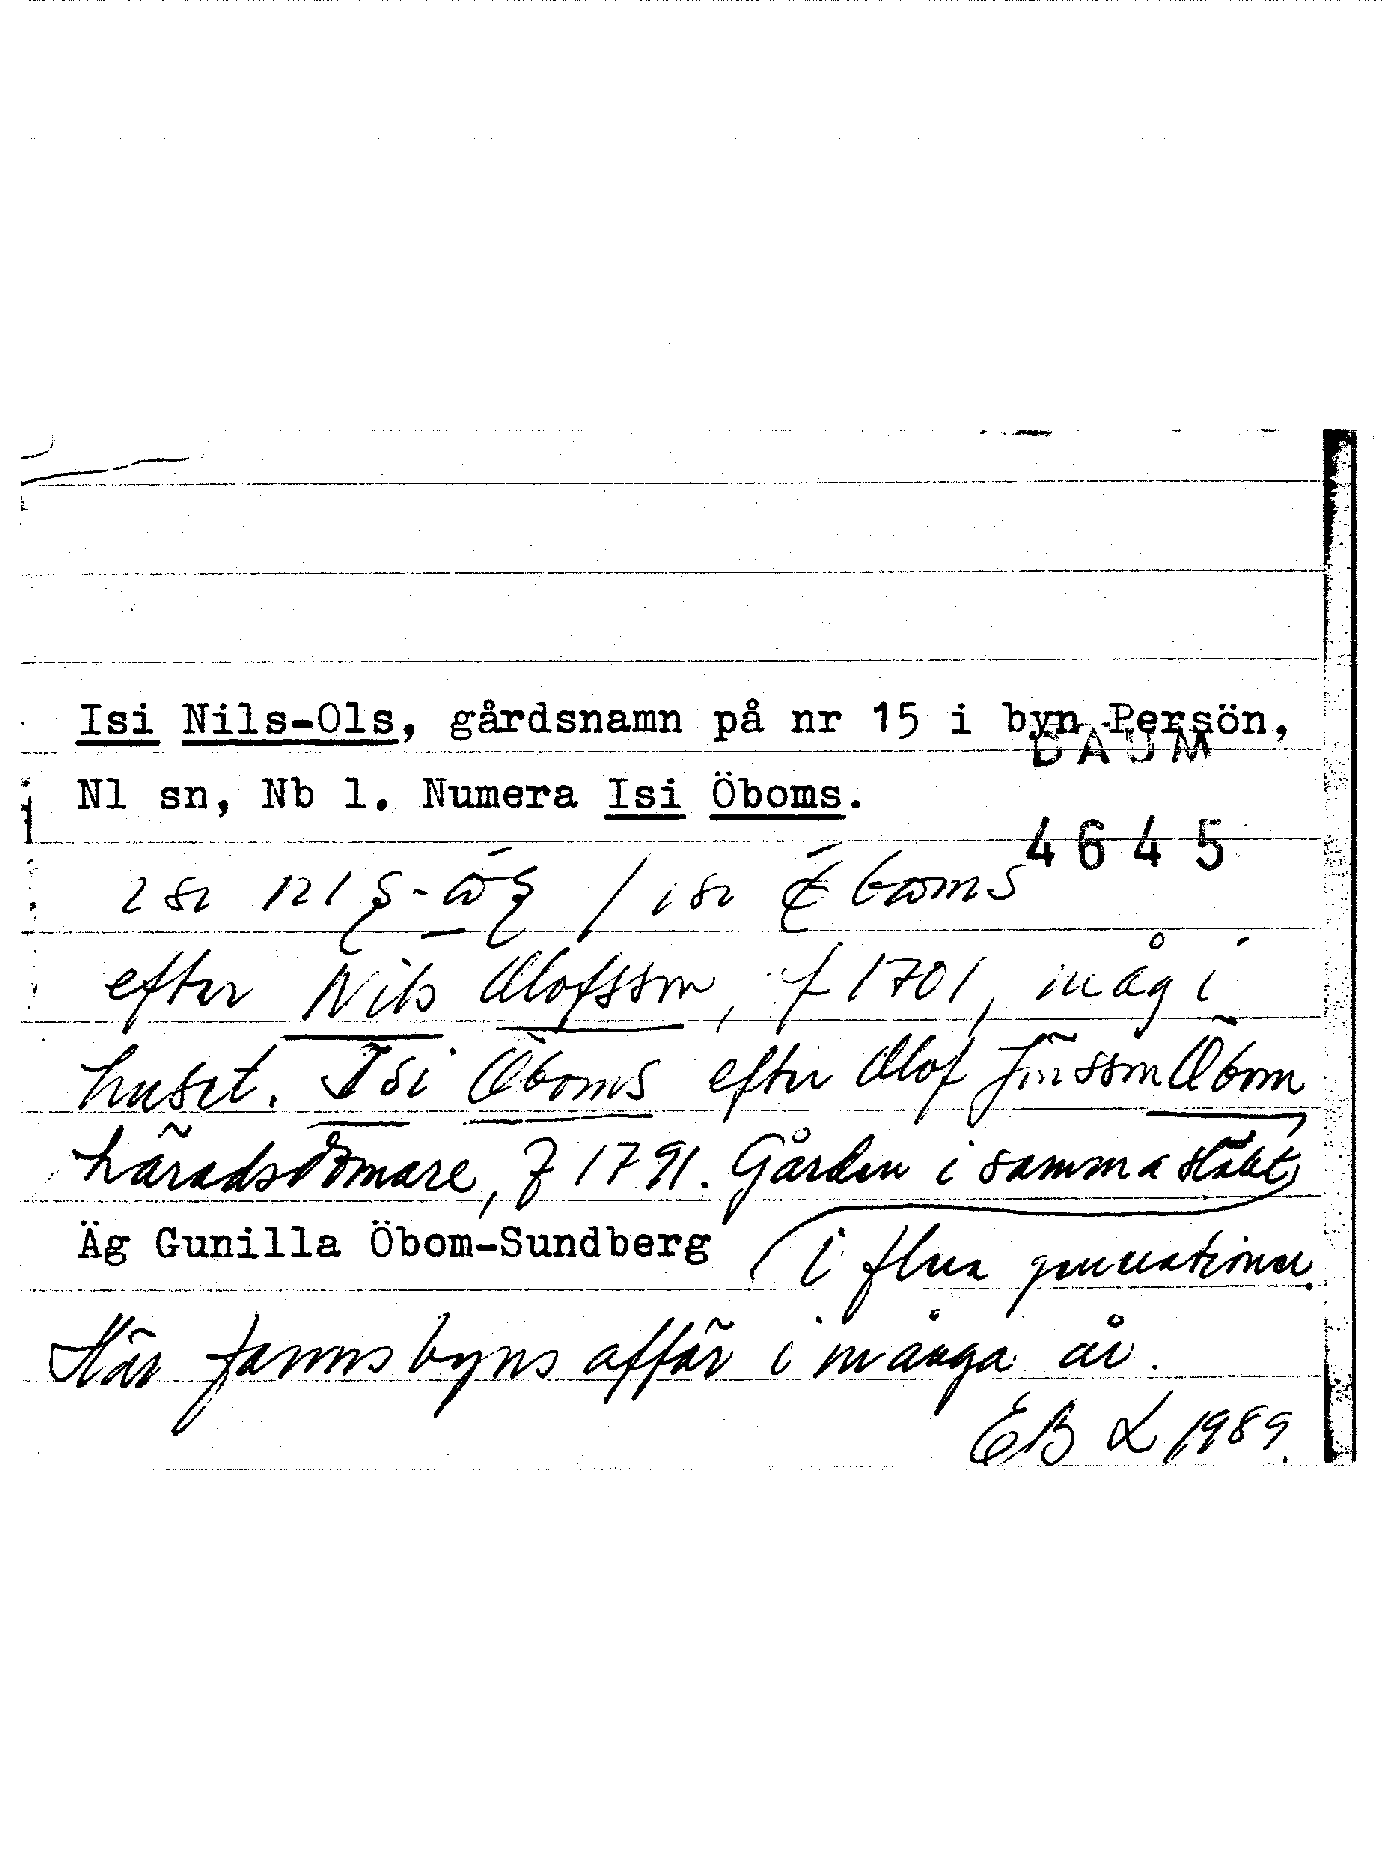 Isi Nils-Ols, gårdsnamn på nr 15 i byn Persön,
DAUM
Nl sn, Nb l. Numera Isi Öboms.
4645
efter Nils Olofsson, f 1701, måg i
huset. Isi Öboms efter Olof Jönsson Öbom
häradsdomare, f 1791. Gården i samma släkt
Äg Gunilla Öbom-Sundberg
i flera generationer.
Här fanns byns affär i många år.
EB L 1989.